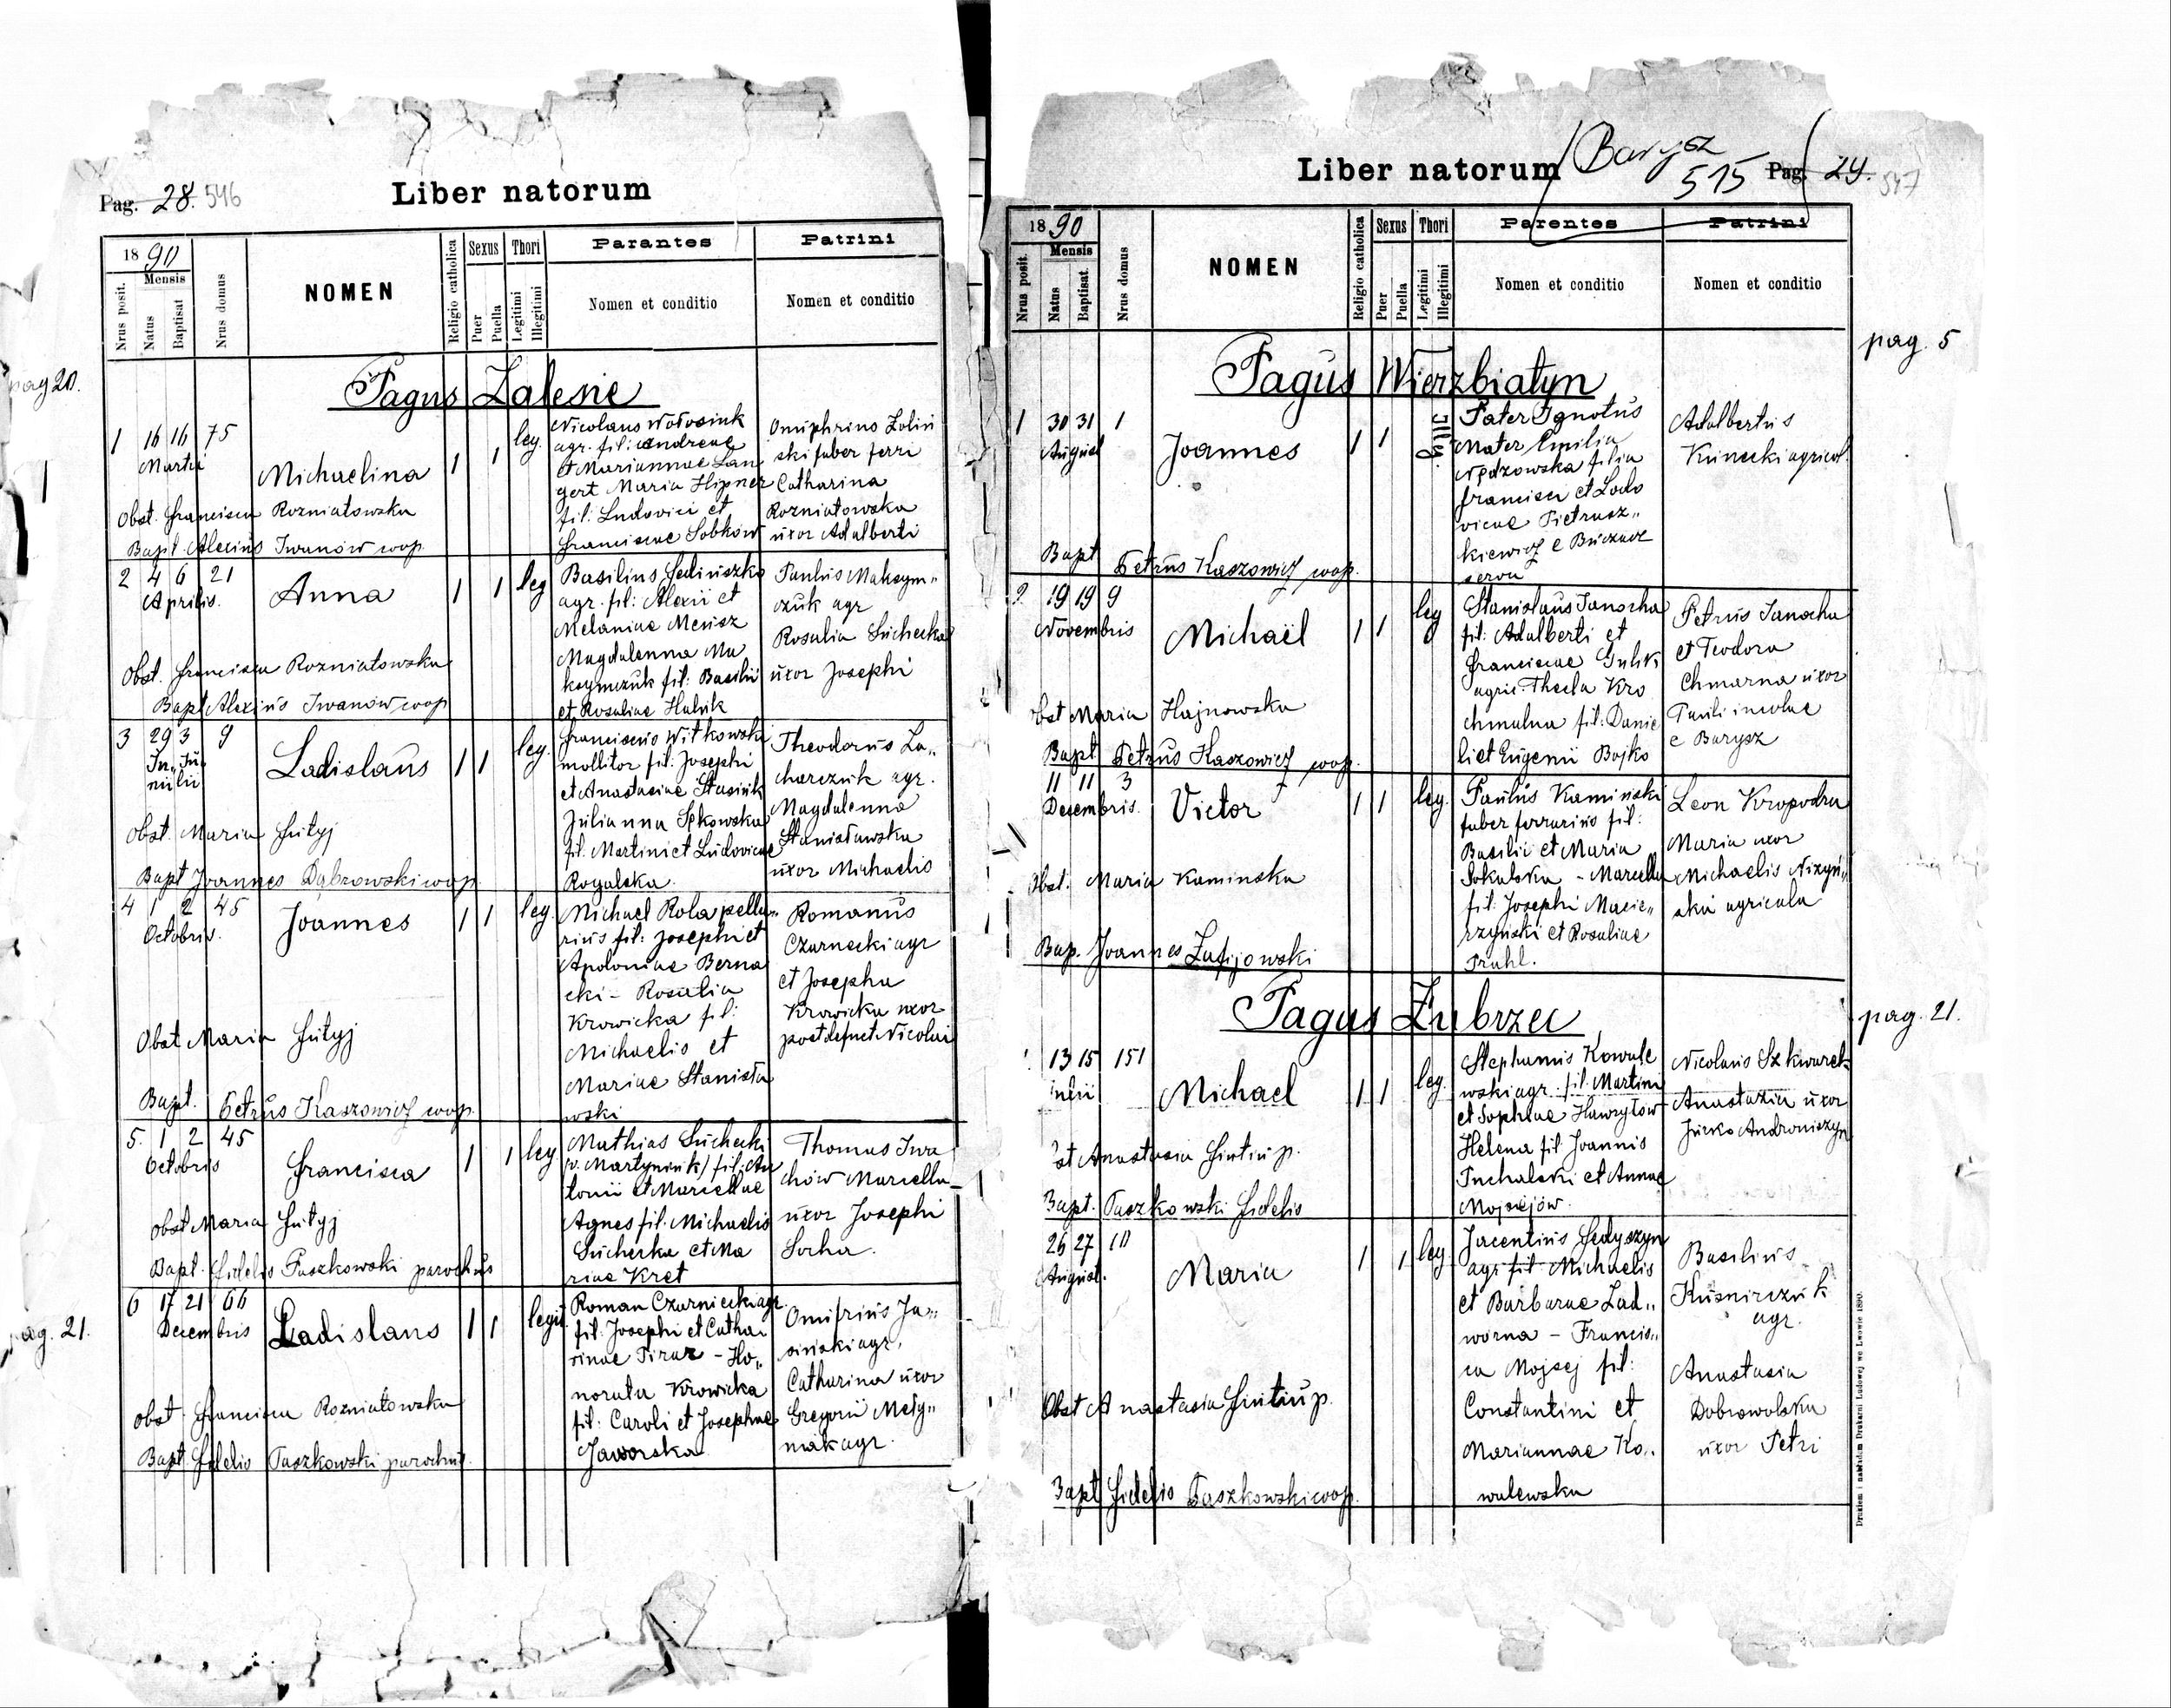 Pag. 28. 546
Liber natorum
1890
Mensis
Nrus posit.
Natus
Baptisat
Nrus domus
NOMEN
Religio catholica
Sexus
Puer
Puella
Thori
Legitimi
Illegitimi
Parantes
Nomen et conditio
Patrini
Nomen et conditio
pag 20.
Pagus Zalesie
1 16 16 75
Martii
Michaelina
1 1 leg.
Nicolaus Wołosiuk
agr. fil: Andreae
et Mariannae Lan
gert Maria Hipner
fil: Ludovici et
Franciscae Sobków
Onuphrius Zoliń
ski faber ferri
Catharina
Rozniatowska
uxor Adalberti
Obst. Francisca Rozniatowska
Bapt Alexius Iwanów coop.
2 4 6 21
Aprilis.
Anna
1 1 leg
Basilius Fediuszko
agr. fil: Alexii et
Melaniae Meusz
Magdalenna Ma
ksymczuk fil: Basilii
et Rosaliae Hulik
Paulus Maksym„
czuk agr
Rosalia Suchecka
uxor Josephi
Obst. Francisca Rozniatowska
Bapt Alexius Iwanów coop
3 29 3 9
Ju„ Ju
nii lii
Ladislaus
1 1 leg.
Franciscus Witkowski
mollitor fil: Josephi
et Anastasiae Stasiuk
Julianna Sękowska
fil. Martini et Ludovicae
Rogalska.
Theodorus Za„
charczuk agr.
Magdalenna
Stanisławska
uxor Michaelis
Obst. Maria Futyj
Bapt Joannes Dąbrowski coop.
4 1 2 45
Octobris.
Joannes
1 1 leg.
Michael Rola pella„
rius fil: Josephi et
Apoloniae Berna
cki – Rosalia
Krowicka fil:
Michaelis et
Mariae Stanisła
wski
Romanus
Czarnecki agr
et Josepha
Krowicka uxor
post defuct Nicolai
Obst Maria Futyj
Bapt. Petrus Kaszowicz coop.
5. 1 2 45
Octobris
Francisca
1 1 leg
Mathias Suchecki
v. Martyniuk/ fil: An
tonii et Marcellae
Agnes fil. Michaelis
Suchecka et Ma
riae Kret
Thomas Iwa
chów Marcella
uxor Josephi
Socha.
Obst Maria Futyj
Bapt. Fidelis Paszkowski parochus
pag. 21.
6 17 21 66
Decembris
Ladislaus
1 1 legit.
Roman Czarniecki agr.
fil: Josephi et Catha
rinae Piraz – Ho„
norata Krowicka
fil: Caroli et Josephae
Jaworska
Onufrius Ja„
siński agr,
Catharina uxor
Gregorii Mely„
niak agr.
Obst Francisca Rozniatowska
Bapt Fidelis Paszkowski parochus.
Liber natorum
Barysz
515
Pag. 29. 547
1890
Mensis
Nrus posit.
Natus
Baptisat
Nrus domus
NOMEN
Religio catholica
Sexus
Puer
Puella
Thori
Legitimi
Illegitimi
Parentes
Nomen et conditio
Patrini
Nomen et conditio
pag. 5
Pagus Wierzbiatyn
1 30 31 1
August
Joannes
1 1 Illeg.
Pater Ignotus
Mater Emilia
Nędzowska filia
Francisci et Lodo
vicae Pietrusz„
kiewicz e Buczacz
serva
Adalbertus
Kunecki agricol.
Bapt Petrus Kaszowicz coop.
2 19 19 9
Novembris
Michaël
1 1 leg
Stanislaus Janocha
fil: Adalberti et
Franciscae Gulik
agric. Thecla Kro
chmalna fil: Danie
li et Eugenii Bojko
Petrus Janocha
et Teodora
Chmarna uxor
Pauli incolae
e Barysz
Obst Maria Hajnowska
Bapt Petrus Kaszowicz coop.
11 11 3
Decembris.
Victor
1 1 leg.
Paulus Kamiński
faber ferrarius fil:
Basilii et Maria
Sokalska – Marcella
fil: Josephi Macie„
rzyński et Rosaliae
Prahl.
Leon Kropodra
Maria uxor
Michaelis Niżyń„
ski agricola
Obst. Maria Kaminska
Bap. Joannes Zafijowski
Pagus Zubrzec
pag. 21.
13 15 151
Michael
1 1 leg.
Stephanus Kowale
wski agr. fil. Martini
et Sophiae Hawryłow
Helena fil Joannis
Puchalski et Annae
Mojsiejów.
Nicolaus Szkwarek
Anastazia uxor
Jurko Androniszyn
Anastasia Hintiu p.
Bapt. Paszkowski Fidelis
26 27 10
August.
Maria
1 1 leg.
Jacentius Fedyszyn
agr fil Michaelis
et Barbarae Zad„
worna – Francis„
ca Mojsej fil:
Constantini et
Mariannae Ko„
walewska
Basilius
Kuśnirczuk
agr.
Anastasia
Dobrowolska
uxor Petri
Obst Anastasia Hintiu p.
Bapt Fidelis Paszkowski coop.
Drukiem i nakładem Drukarni Ludowej we Lwowie 1890.